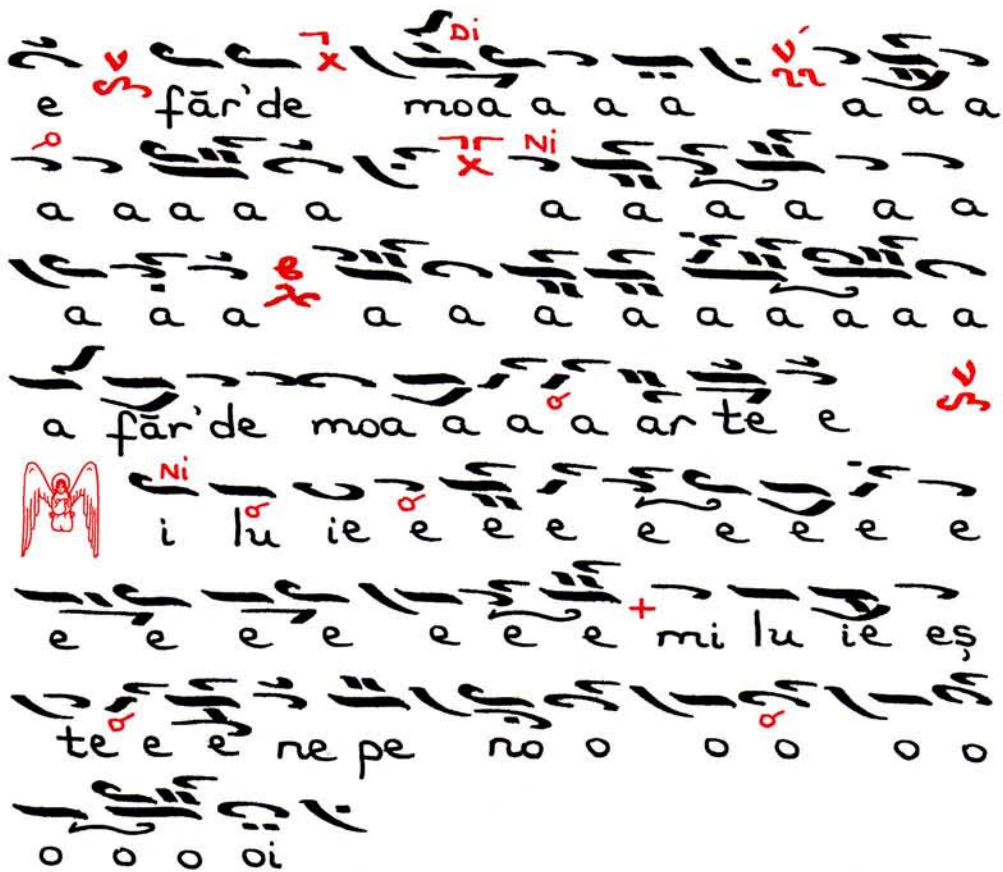 Di
e făr'de moa a a a a a a
a a a a a Ni a a a a a a
a a a a a a a a a a a
a făr'de moa a a a ar te e
Ni
i lu ie e e e e e e e e
e e e e e e e mi lu ie eș
te e e ne pe no o o o o o
o o o oi